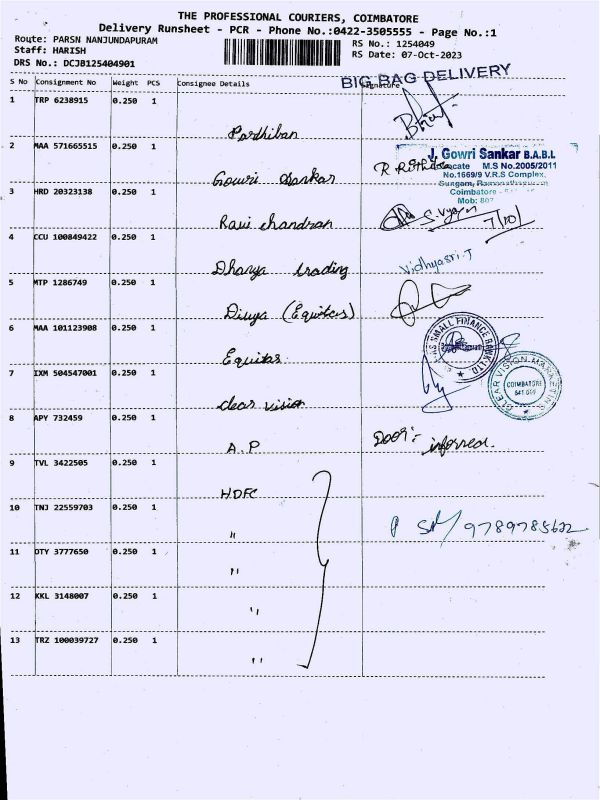 THE PROFESSIONAL COURIERS, COIMBATORE
Delivery Runsheet - PCR - Phone No.:0422-3505555 - Page No.:1
Route: PARSN NANJUNDAPURAM
RS No.: 1254049
Staff: HARISH
RS Date: 07-Oct-2023
DRS No.: DCJB125404901
BIG BAG DELIVERY
S No Consignment No Weight PCS Consignee Details Signature
1 TRP 6238915 0.250 1
Parthiban
2 MAA 571665515 0.250 1
J. Gowri Sankar B.A.B.L
M.S No.2005/2011
No.1669/9 V.R.S Complex,
Coimbatore -
Mob:
Gowri Sankar
3 HRD 20323138 0.250 1
Ravi chandran
7/10/
4 CCU 100849422 0.250 1
Vidhyasri.T
Dhanya trading
5 MTP 1286749 0.250 1
Divya (Equitas)
6 MAA 101123908 0.250 1
SMALL FINANCE BANK LTD.
Equitas
7 IXM 504547001 0.250 1
CLEAR VISION MARKETING
COIMBATORE
clear vision
8 APY 732459 0.250 1
Door:- inforred.
A.P
9 TVL 3422505 0.250 1
HDFC
10 TNJ 22559703 0.250 1
9789785622
"
11 OTY 3777650 0.250 1
"
12 KKL 3148007 0.250 1
"
13 TRZ 100039727 0.250 1
"